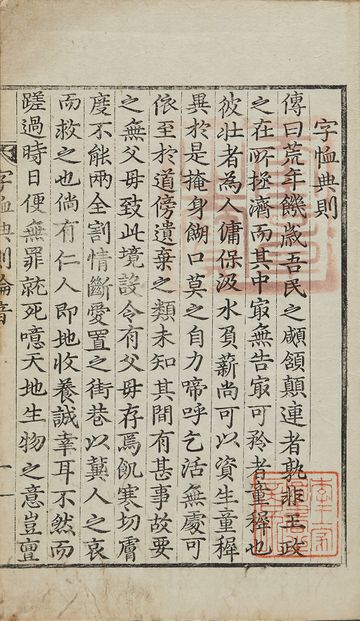 字恤典則
傳曰荒年饑歲吾民之顑頷顛連者孰非王政
之在所拯濟而其中㝡無告㝡可矜者童穉也
彼壯者為人傭保汲水負薪尚可以資生童穉
異於是掩身餬口莫之自力啼呼乞活無處可
依至於道傍遺棄之類未知其間有甚事故要
之無父母致此境設令有父母存焉飢寒切膚
度不能兩全割情斷愛置之街巷以冀人之哀
而救之也倘有仁人即地收養誠幸耳不然而
蹉過時日便無罪就死噫天地生物之意豈亶
字恤典則 綸音 一